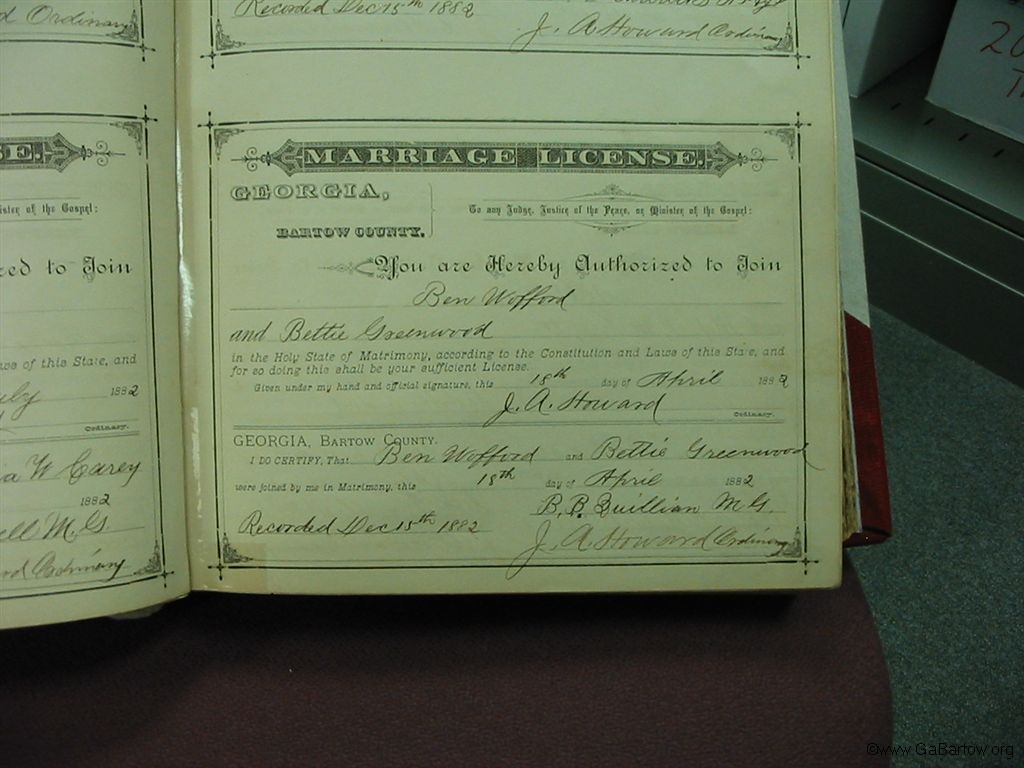 d Ordinary
Recorded Dec 15th 1882
J. A Howard Ordinary
20
SE.
MARRIAGE LICENSE.
GEORGIA,
BARTOW COUNTY.
To any Judge, Justice of the Peace, or Minister of the Gospel:
You are Hereby Authorized to Join
Ben Wofford
and Bettie Greenwood
in the Holy State of Matrimony, according to the Constitution and Laws of this State, and
for so doing this shall be your sufficient License.
Given under my hand and official signature, this 18th day of April 1882
J. A. Howard Ordinary.
GEORGIA, BARTOW COUNTY.
I DO CERTIFY, That Ben Wofford and Bettie Greenwood
were joined by me in Matrimony, this 18th day of April 1882
B. B. Quillian M G.
Recorded Dec 15th 1882
J. A Howard Ordinary
ister of the Gospel:
zed to Join
ws of this State, and
1882
Ordinary.
a W Carey
1882
ell M. G.
rd Ordinary
©www.GaBartow.org